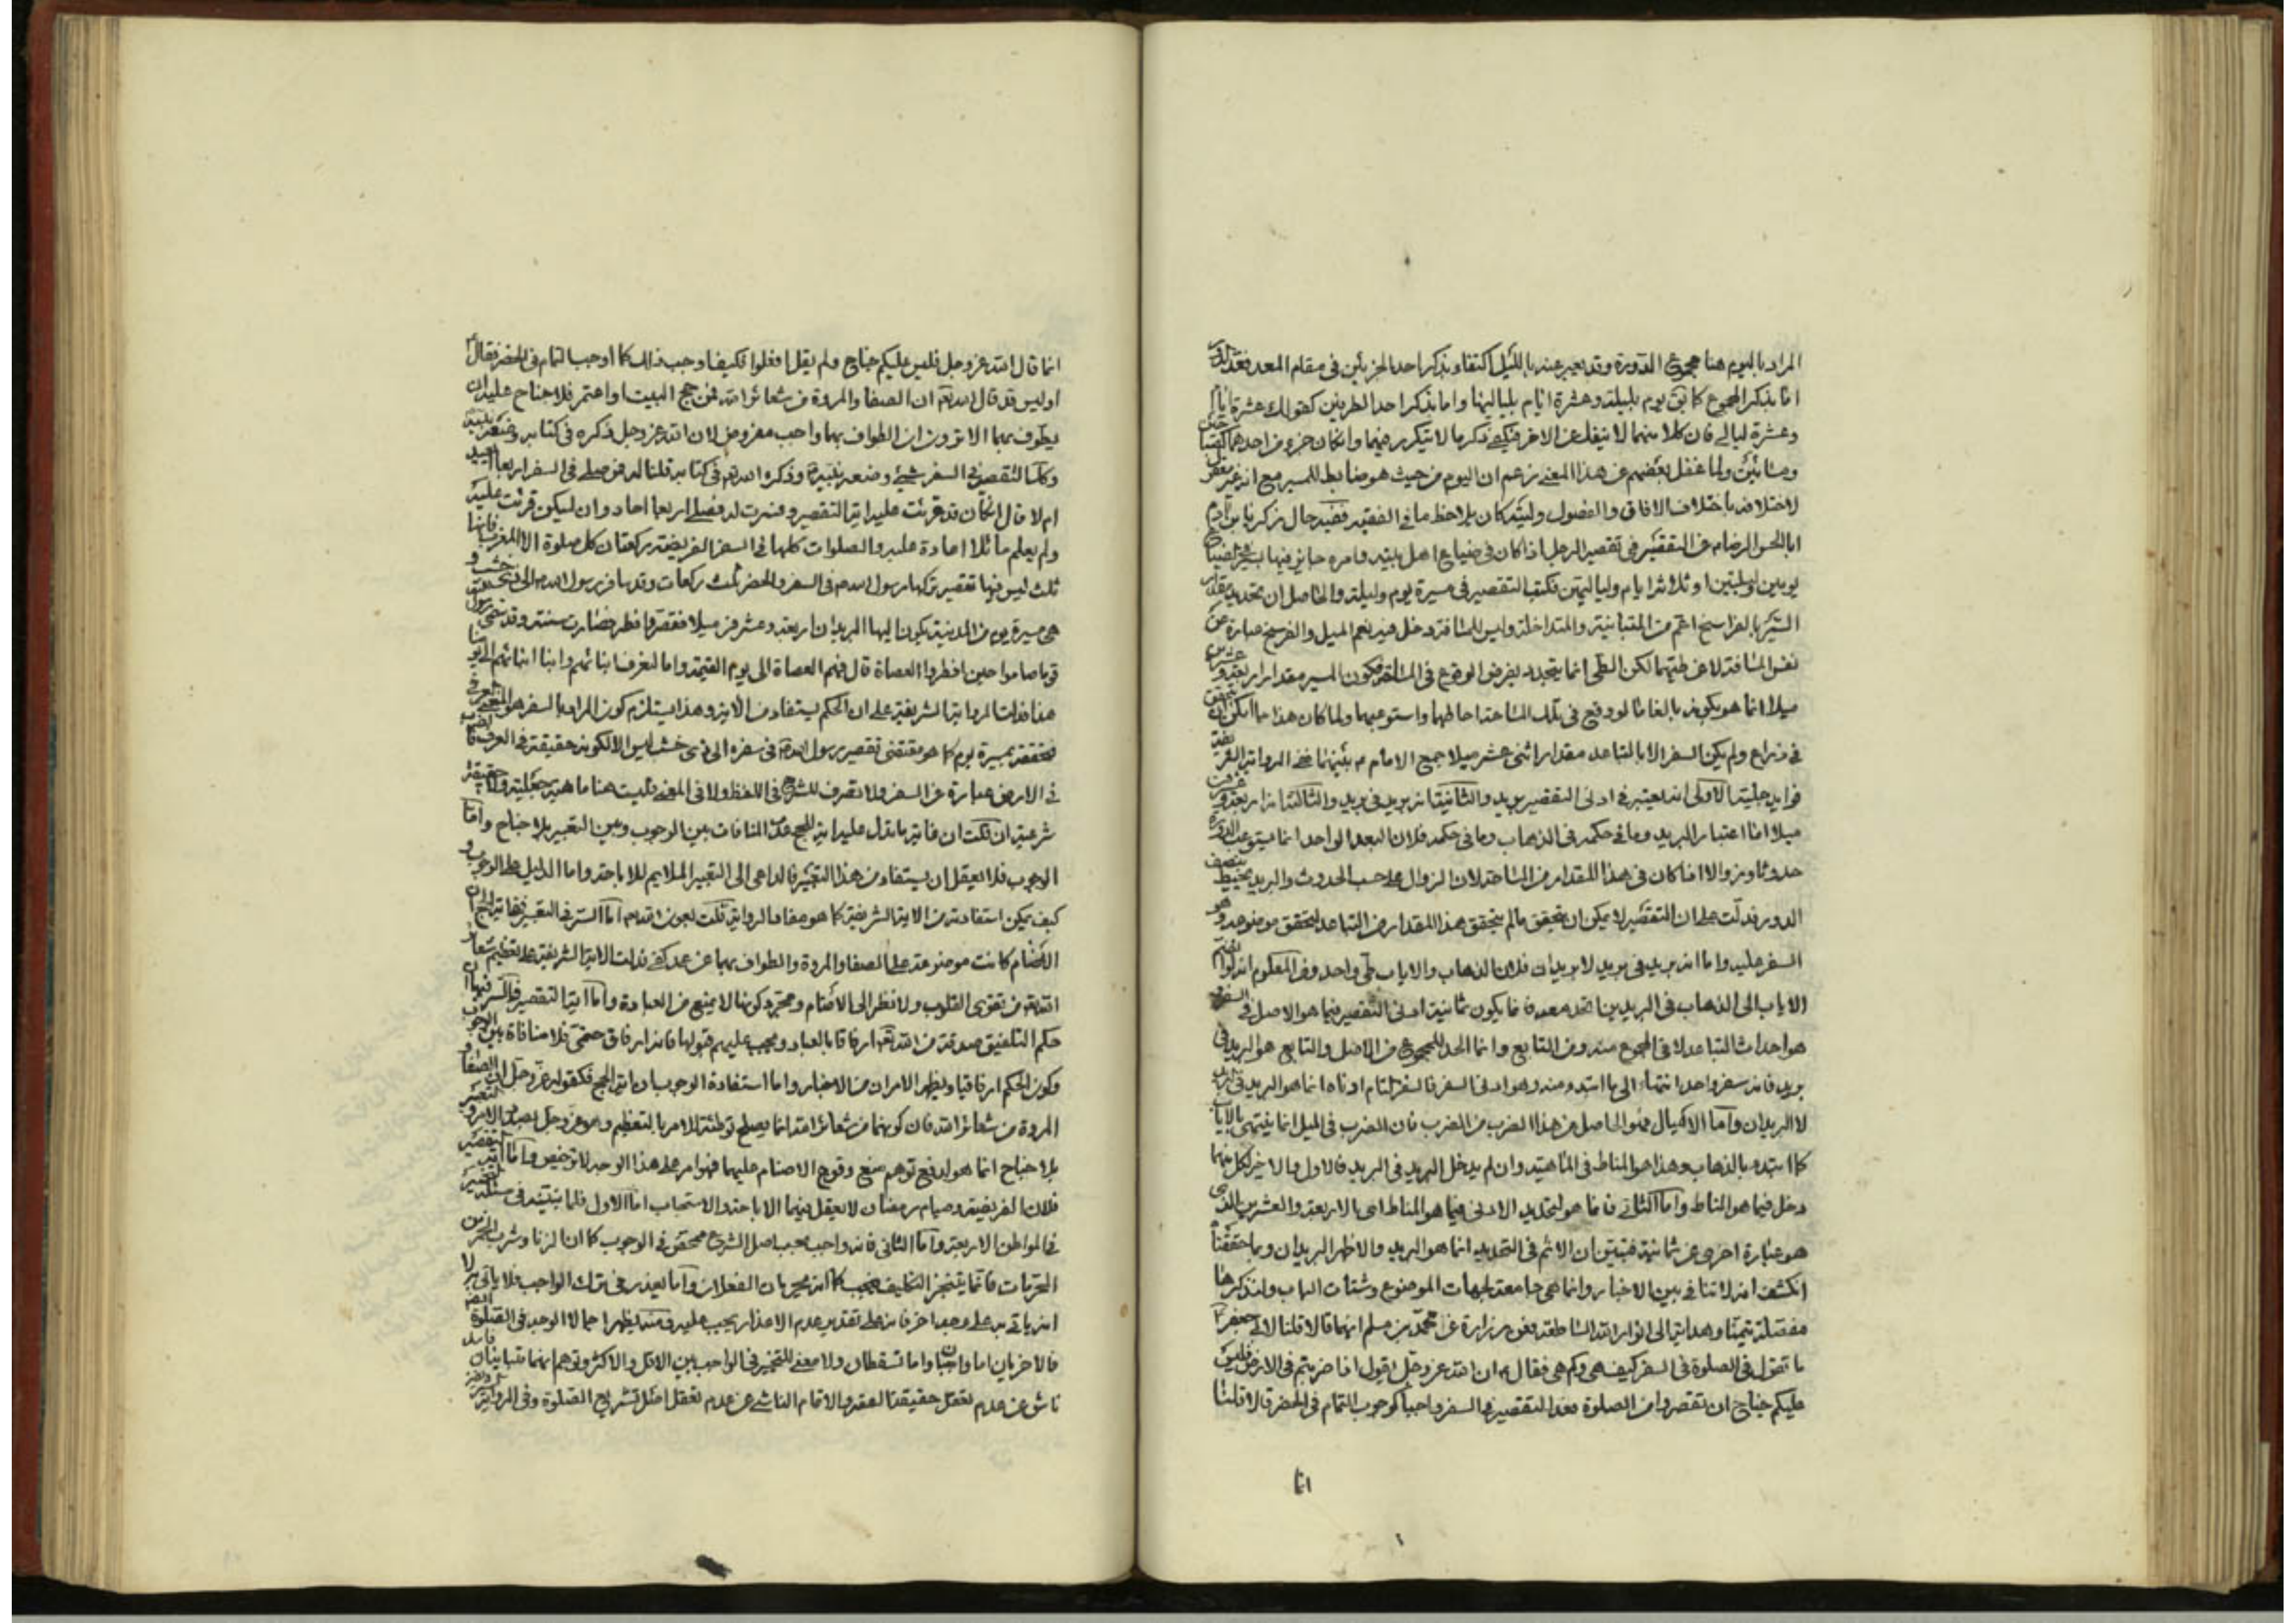 المراد باليوم هنا مجموع الدورة وقد يعبر عنه بالليل اكتفاء بذكر احد الجزئين فى مقام المعد فقد
اما بذكر المجموع كما فى يوم بليلته وعشرة ايام بلياليها واما بذكر احد الطرفين كقولك عشرة ايام
وعشرة ليالى فان كلا منهما لا ينفك عن الاخر فيكفى ذكر ما لا يتكرر فيهما وان كان جزء من احدهما
ولما غفل بعضهم عن هذا المعنى زعم ان اليوم من حيث هو ضابط للمسير مع انه غير
لاختلافه باختلاف الافاق والفصول وليته كان يلاحظ ما فى الفقيه ففيه سال زكريا بن ادم
ابا الحسن الرضا عن التقصير فى تقصير الرجل اذا كان فى ضياع اهل بيته وامره جايز فيها يسير فى الضياع
يومين وليلتين او ثلاثة ايام ولياليهن فكتب التقصير فى مسيرة يوم وليلة والحاصل ان تحديد مقدار
السير بالفراسخ اعم من المتباينة والمتداخلة وليس للمسافة دخل فيه نعم الميل والفرسخ عبارة عن
نفس المسافة لا عن طيها لكن الطى انما يتحدد بفرض الوقوع فى المسافة فكون المسير مقدار اربعة وعشرين
ميلا انما هو بكونه بالغا ما لو وقع فى تلك المساحة احاطها واستوعبها ولما كان هذا مما امكن ان يتحقق
فى ذراع ولم يكن السفر الا بالتباعد مقدار اثنى عشر ميلا جمع الامام م بينهما ففى الرواية الشريفة
فوايد جليلة الاولى انه يعتبر فى ادنى التقصير بريد والثانية انه بريد فى بريد والثالثة انه اربعة وعشرون
ميلا اما اعتبار البريد وما فى حكمه فى الذهاب وما فى حكمه فلان البعد الواحد انما يستوعب الدورة
حدوثا وزوالا اذا كان فى هذا المقدار من المساحة لان الزوال على حسب الحدوث والبريد يحيط بنصف
الدور فدلت على ان التقصير لا يمكن ان يتحقق ما لم يتحقق هذا المقدار من التباعد لتحقق موضوعه وهو
السفر عليه واما انه بريد فى بريد لا بريدان فلان الذهاب والاياب طى واحد ومن المعلوم انه لو انضم
الاياب الى الذهاب فى البريدين اتحد معه فانما يكون ثمانية ادنى التقصير فيما هو الاصل فى السفر
هو احداث التباعد لا فى المجموع منه ومن التابع وانما الحد للمجموع من الاصل والتابع هو البريد فى
بريد فانه سفر واحد انتهاء الى ما ابتدء منه وهو ادنى السفر فالسفر التام ادناه انما هو البريد فى البريد
لا البريدان واما الاميال فهو الحاصل من هذا الضرب من الضرب فان الضرب فى الميل انما ينتهى بالاياب
كما ابتدء بالذهاب وهذا هو المناط فى الماهية وان لم يدخل البريد فى البريد فالاول والاخير لكل منهما
دخل فيما هو المناط واما الثانى فانما هو لتحديد الادنى فيما هو المناط اى بالاربعة والعشرين الذى
هو عبارة اخرى عن ثمانية فتبين ان الاتم فى التحديد انما هو البريد والاظهر البريدان وبما حققنا
انكشف انه لا تنافى بين الاخبار وانما هى جامعة لجهات الموضوع وشتات الباب ولنذكرها
مفصلة تيمنا وهداية الى انوار الله الساطعة فعن زرارة عن محمد بن مسلم انهما قالا قلنا لابى جعفر
ما تقول فى الصلوة فى السفر كيف هى وكم هى فقال ان الله عز وجل يقول اذا ضربتم فى الارض فليس
عليكم جناح ان تقصروا من الصلوة فغدا التقصير فى السفر واجبا كوجوب التمام فى الحضر قالا قلنا
انما
انما قال الله عز وجل فليس عليكم جناح ولم يقل افعلوا فكيف اوجب ذلك كما اوجب التمام فى الحضر فقال
اوليس قد قال الله تعالى ان الصفا والمروة من شعائر الله فمن حج البيت او اعتمر فلا جناح عليه ان
يطوف بهما الا ترون ان الطواف بهما واجب مفروض لان الله عز وجل ذكره فى كتابه وصنعه نبيه
وكذا التقصير فى السفر شىء صنعه نبيه وذكره الله فى كتابه قلنا له فمن صلى فى السفر اربعا ايعيد
ام لا قال ان كان قد قرئت عليه اية التقصير وفسرت له فصلى اربعا اعاد وان لم يكن قرئت عليه
ولم يعلمها فلا اعادة عليه والصلوات كلها فى السفر الفريضة ركعتان كل صلوة الا المغرب فانها
ثلث ليس فيها تقصير تركها رسول الله ص فى السفر والحضر ثلث ركعات وقد سافر رسول الله ص الى ذى خشب و
هى مسيرة يوم من المدينة يكون اليها البريدان اربعة وعشرون ميلا فقصر وافطر فصارت سنة وقد سمى رسول
قوما صاموا حين افطروا العصاة قال فهم العصاة الى يوم القيمة وانا لنعرف ابنائهم وابناء ابنائهم الى يومنا
هذا فدلت الرواية الشريفة على ان الحكم يستفاد من الاية وهذا يستلزم كون المراد بالسفر هو المعنى
بمسيرة يوم كما هو مقتضى تقصير رسول الله ص فى سفره الى ذى خشب ليس الا لكونه حقيقة فى العرف
فى الارض عبارة عن السفر ولا تصرف للشرع فى اللفظ ولا فى المعنى فليست هنا ماهية جعلية ولا حقيقة
شرعية ان قلت ان غاية ما تدل عليه اية الحج عدم المنافات بين الوجوب وبين التعبير بلا جناح واما
الوجوب فلا يعقل ان يستفاد من هذا التعبير فالداعى الى التعبير الملايم للاباحة واما الدليل على الوجوب و
كيف يمكن استفادته من الاية الشريفة كما هو مفاد الرواية قلت بعون الله اما السر فى التعبير فى اية الحج ان
الاصنام كانت موضوعة على الصفا والمروة والطواف بهما فدلت الاية الشريفة على تعظيم شعائر
الله من تقوى القلوب ولا نظر الى الاصنام ومجرد كونها لا يمنع من العبادة واما اية التقصير فالسر فيها ان
حكم التلفيق صدقة من الله تعالى ارفاقا بالعباد ويجب عليهم قبولها فانه ارفاق حتمى فلا منافاة بين الوجوب
وكون الحكم ارفاقيا ويظهر الامران من الاخبار واما استفادة الوجوب من اية الحج فكقوله عز وجل ان الصفا و
المروة من شعائر الله فان كونهما من شعائر الله انما يصلح توطئة للامر بالتعظيم
بلا جناح انما هو لدفع توهم منع وقوع الاصنام عليهما فهو امر على هذا الوجه لا ترخيص واما اية التقصير
فلان الفريضة وصيام رمضان لا يعقل فيهما الاباحة والاستحباب اما الاول فلما بينته فى مسئلة التخيير
فى المواطن الاربعة واما الثانى فانه واجب بحسب اصل الشرع محقق فى الوجوب كما ان الزنا وشرب الخمر من
المحرمات
انه ياتى به على وجه اخر فانه على تقدير عدم الاعذار يجب عليه ومنه يظهر اجمالا الوجه فى الصلوة
فالاخريان اما واجبتان واما تسقطان ولا معنى للتخيير فى الواجب بين الاقل والاكثر وتوهم انهما متباينان
ناش عن عدم تعقل حقيقة القصر والاتمام الناشى عن عدم تعقل اصل تشريع الصلوة وفى الرواية